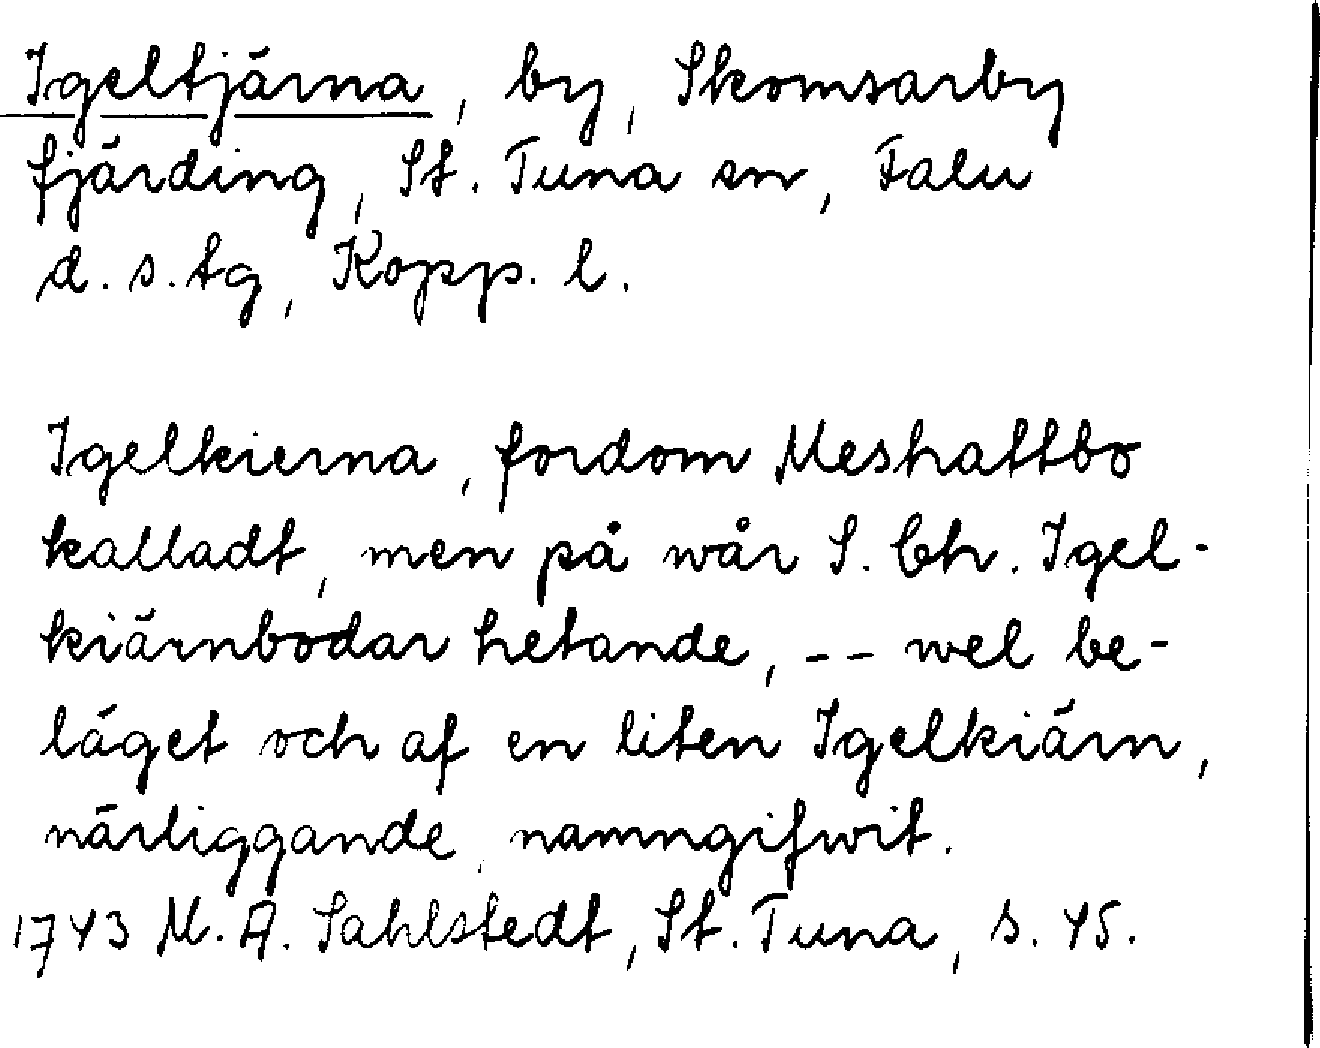 Igeltjärna, by, Skomsarby
fjärding, St. Tuna sn, Falu
d. s. tg, Kopp. l.
Igelkierna, fordom Meshattbo
kalladt, men på wår S. Ch. Igel-
kiärnbodar hetande, -- wel be-
läget och af en liten Igelkiärn,
närliggande, namngifwit.
1743 M. A. Sahlstedt, St. Tuna, s. 45.